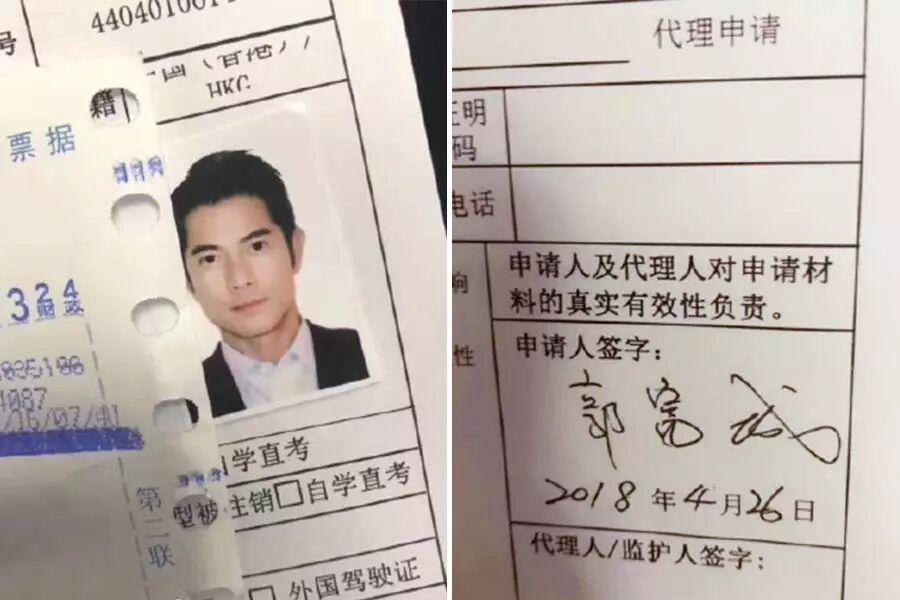 号
籍
HKG
票据
324
财政
自学直考
第二联
型被
主销□自学直考
□ 外国驾驶证
代理申请
证明
码
电话
响
申请人及代理人对申请材
料的真实有效性负责。
性
申请人签字：
郭富城
2018年4月26日
代理人/监护人签字：